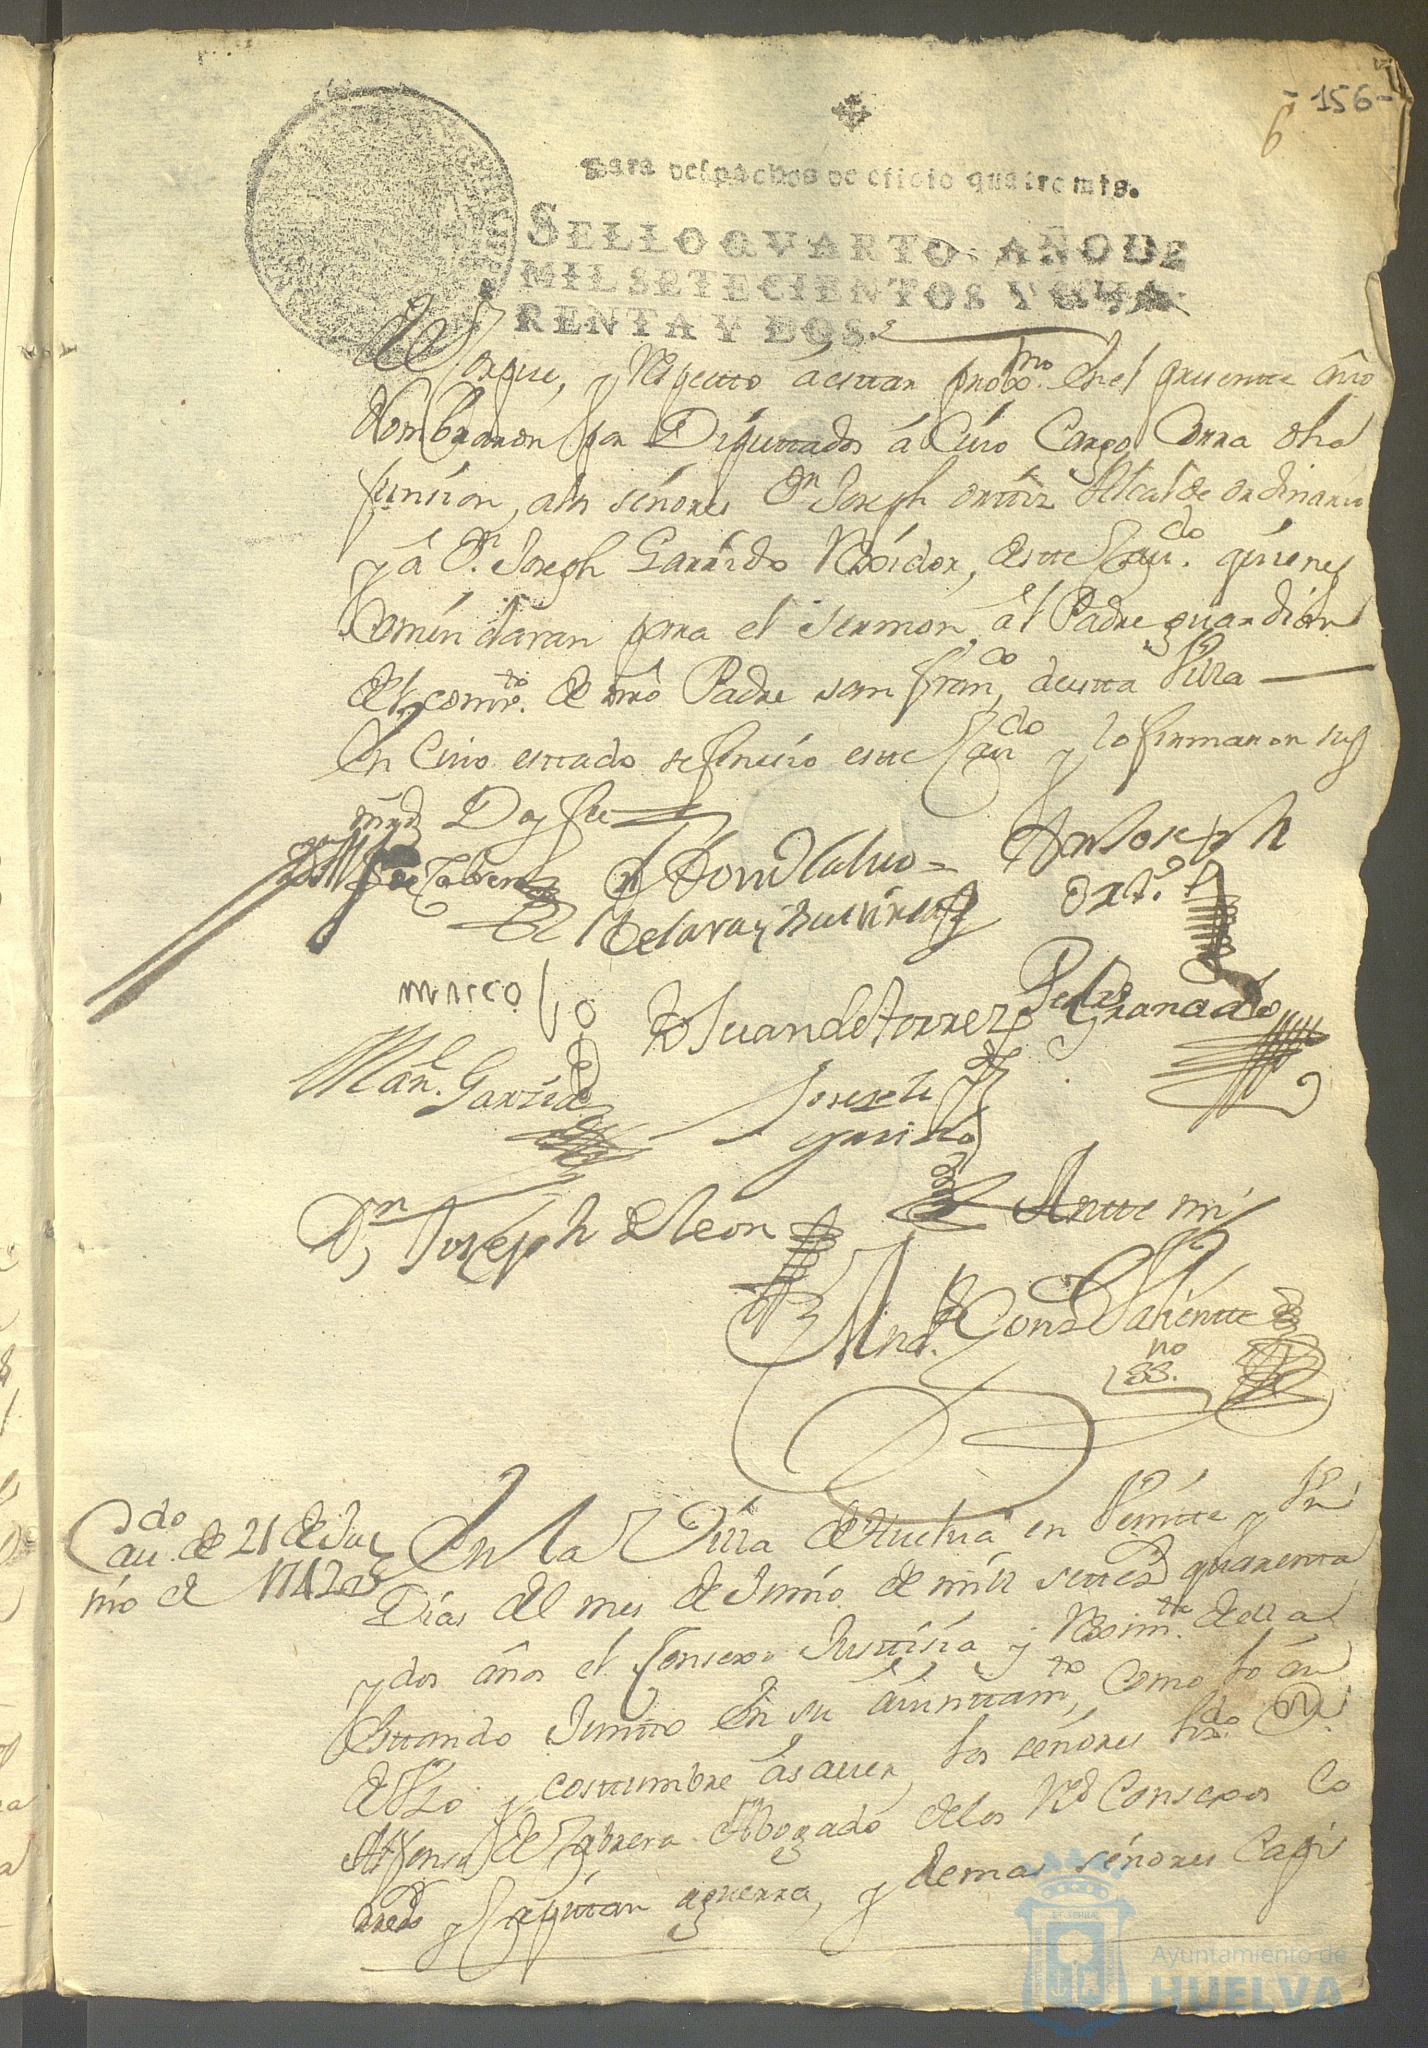 -156-
6
Para despachos de oficio quatro mrs.
SELLO QVARTO, AÑO DE
MIL SETECIENTOS Y QUA
RENTA Y DOS.
de Corpus, y Respecto a estar proxmo. En el presente año
Nombraron por Diputtados á Cuio Cargo Corra dha
funsion, a los señores Dn Joseph orttiz Alcalde ordinario
y â Dn. Joseph Garrido Rexidor, destte Caudo. quienes
Comendaran para el sermon al Padre guardian
del combto. de nro Padre san franco, destta Villa
En Cuio esttado se feneció estte Caudo y lo firmaron sus
mrds Doy fee
Cabrera
Dn Joseph
de Lara y
Ort.z
Marcos
D Juan de torres
Pedro Granado
Manl. Garzia
Joseph
garrido
Dn Joseph de leon
Antte mi
Gonz Valientte
ssno.
Caudo. de 21 de Ju
nio de 1742
En la Villa de Huelva en Veintte y Un
Dias del mes de Junio de mill settezs quarenta
y dos años el Consexo Justtisia y Reximtto. de ella
esttando Juntto En su aiunttamto, Como lo án
de Uzo y costtumbre ásauer, los señores Lizdo Dn
Alfonso de Cabrera Abogado de los Rs Consexos Co
rredr y Capittan aguerra, y demas señores Capis
Ayuntamiento de
HUELVA